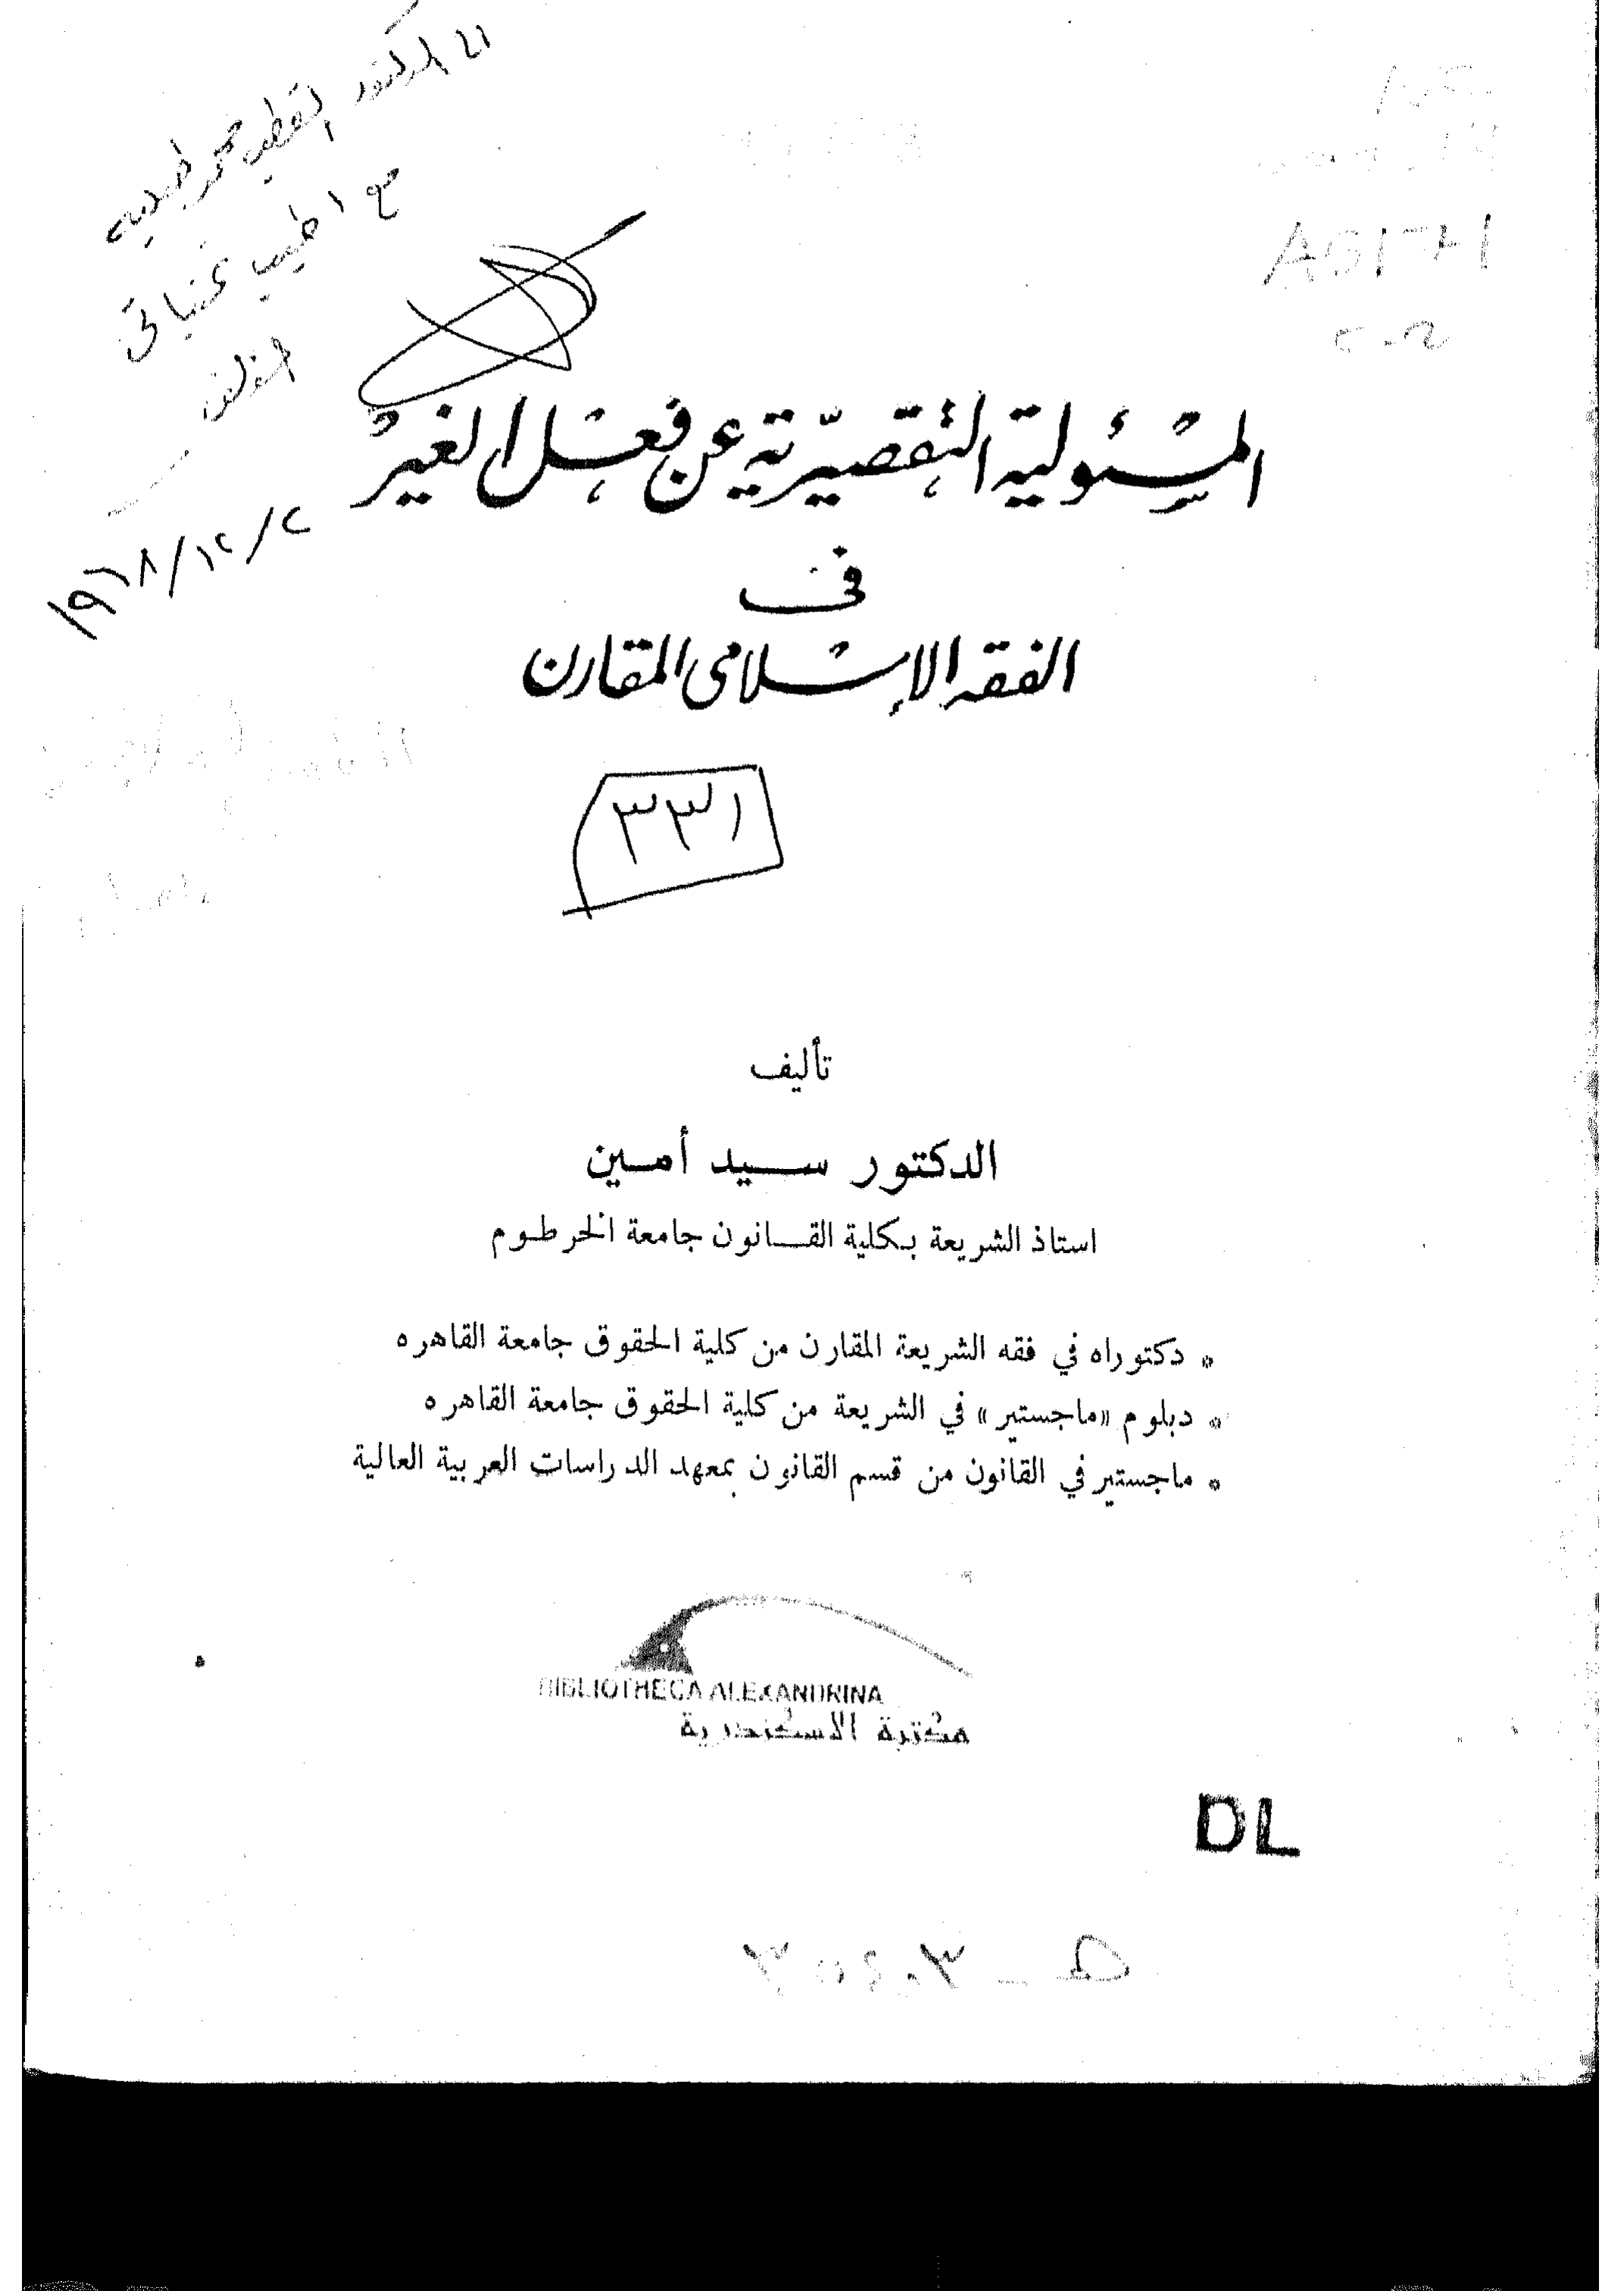 الى الدكتور القطب محمد طبلية
مع اطيب تمنياتى
المؤلف
١٩٦٨/١٢/٢
المسئولية التقصيرية عن فعل الغير
فى
الفقه الإسلامى المقارن
٣٣١
تأليف
الدكتور سيد أمين
استاذ الشريعة بكلية القانون جامعة الخرطوم
* دكتوراه في فقه الشريعة المقارن من كلية الحقوق جامعة القاهره
* دبلوم «ماجستير» في الشريعة من كلية الحقوق جامعة القاهره
* ماجستير في القانون من قسم القانون بمعهد الدراسات العربية العالية
BIBLIOTHECA ALEXANDRINA
مكتبة الاسكندرية
DL